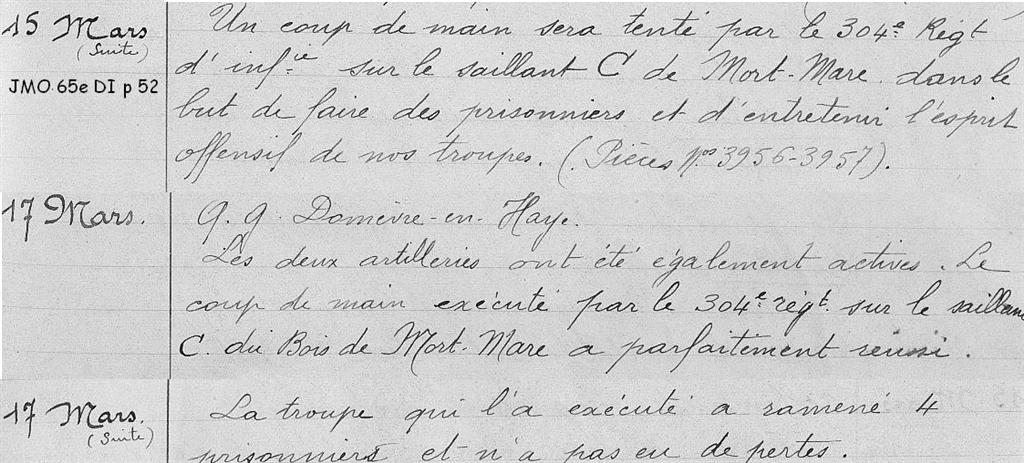 15 Mars
(Suite)
JMO 65e DI p 52
Un coup de main sera tenté par le 304e Régt
d'infie sur le saillant C de Mort-Mare dans le
but de faire des prisonniers et d'entretenir l'esprit
offensif de nos troupes. (Pièces Nos 3956-3957).
17 Mars.
Q. G. Domèvre-en-Haye.
Les deux artilleries ont été également actives. Le
coup de main exécuté par le 304e régt. sur le saillant
C. du Bois de Mort-Mare a parfaitement réussi.
17 Mars.
(Suite)
La troupe qui l'a exécuté a ramené 4
prisonniers et n'a pas eu de pertes.